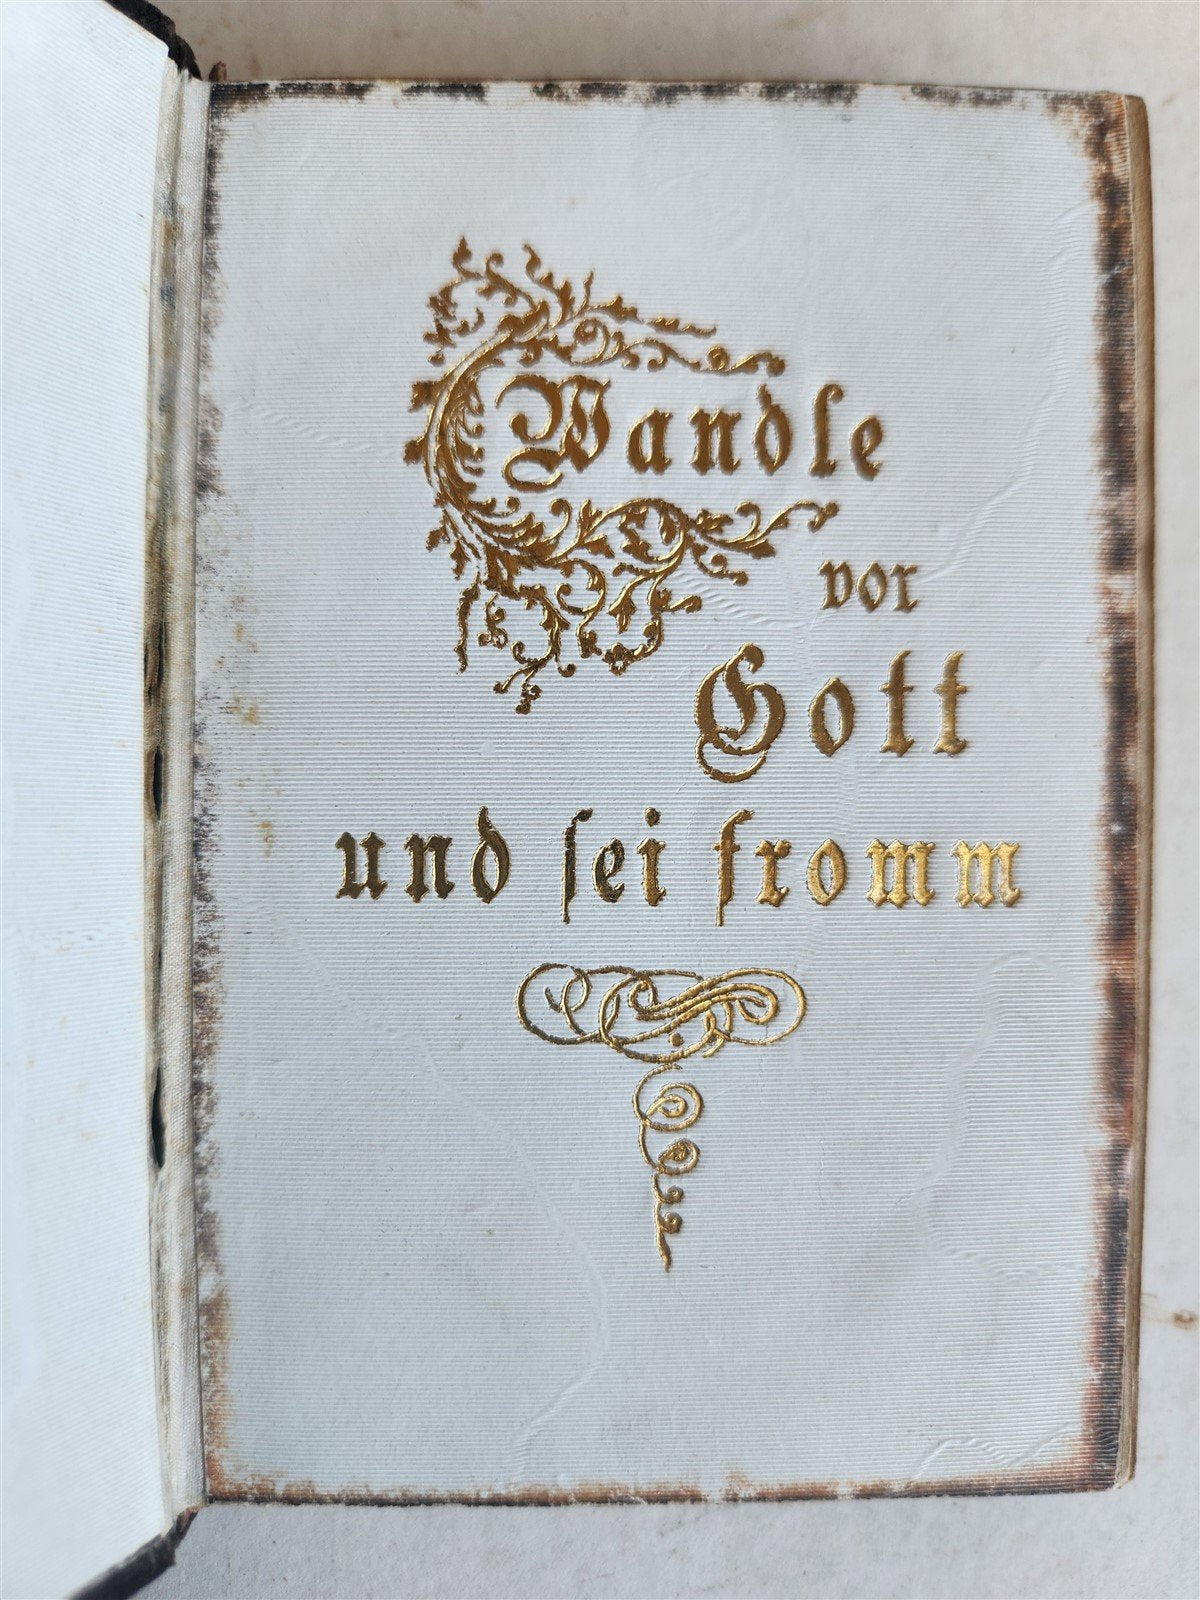 Wandle
vor
Gott
und sei fromm